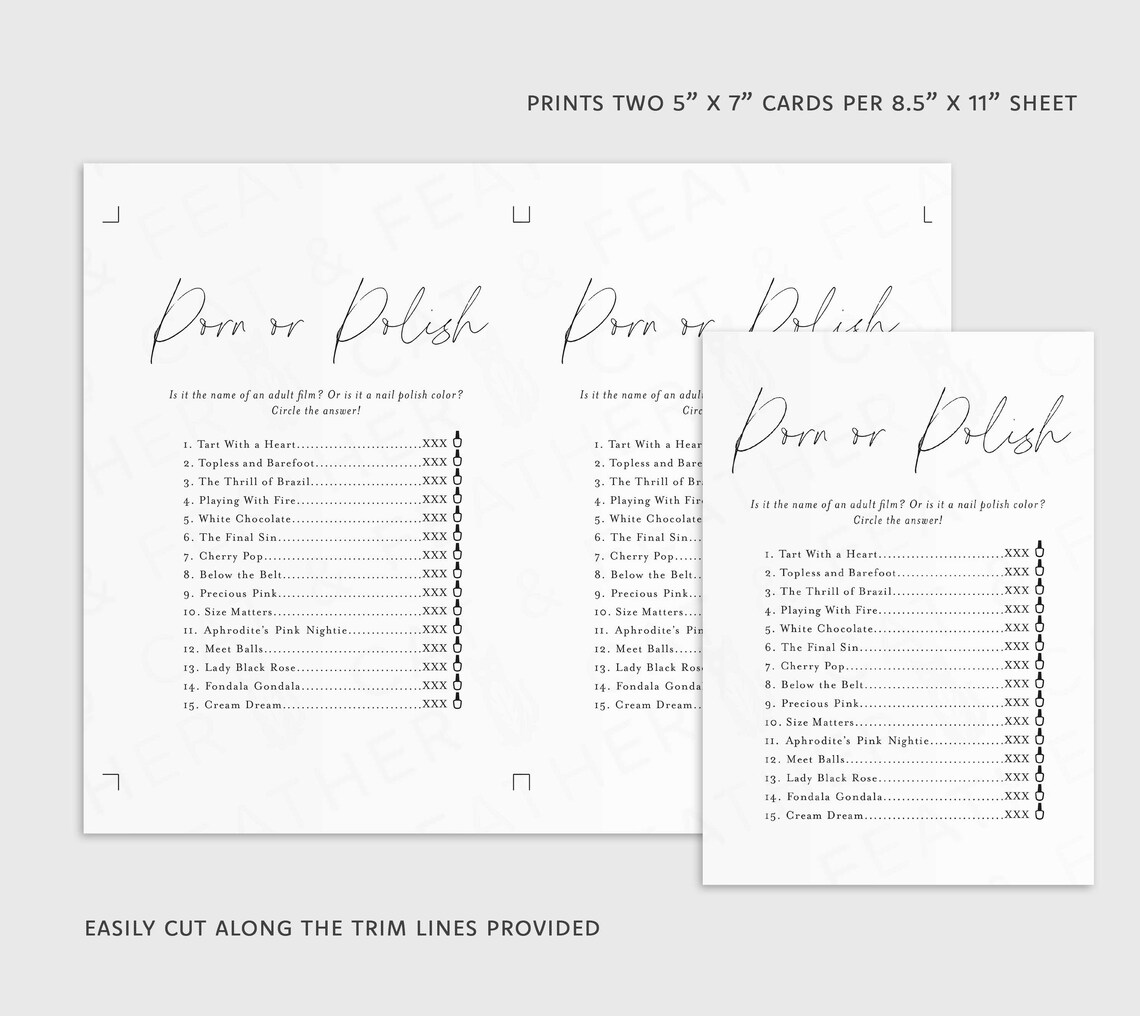 PRINTS TWO 5” X 7” CARDS PER 8.5” X 11” SHEET
Porn or Polish
Is it the name of an adult film? Or is it a nail polish color?
Circle the answer!
1. Tart With a Heart...........................XXX
2. Topless and Barefoot.......................XXX
3. The Thrill of Brazil........................XXX
4. Playing With Fire...........................XXX
5. White Chocolate............................XXX
6. The Final Sin...............................XXX
7. Cherry Pop..................................XXX
8. Below the Belt..............................XXX
9. Precious Pink...............................XXX
10. Size Matters................................XXX
11. Aphrodite’s Pink Nightie................XXX
12. Meet Balls..................................XXX
13. Lady Black Rose...........................XXX
14. Fondala Gondala..........................XXX
15. Cream Dream..............................XXX
Porn or Polish
Is it the name of an adul
Circ
1. Tart With a Hear
2. Topless and Bare
3. The Thrill of Br
4. Playing With Fir
5. White Chocolate
6. The Final Sin...
7. Cherry Pop.....
8. Below the Belt..
9. Precious Pink...
10. Size Matters....
11. Aphrodite’s Pin
12. Meet Balls......
13. Lady Black Ros
14. Fondala Gonda
15. Cream Dream..
Porn or Polish
Is it the name of an adult film? Or is it a nail polish color?
Circle the answer!
1. Tart With a Heart...........................XXX
2. Topless and Barefoot.......................XXX
3. The Thrill of Brazil........................XXX
4. Playing With Fire...........................XXX
5. White Chocolate............................XXX
6. The Final Sin...............................XXX
7. Cherry Pop..................................XXX
8. Below the Belt..............................XXX
9. Precious Pink...............................XXX
10. Size Matters................................XXX
11. Aphrodite’s Pink Nightie................XXX
12. Meet Balls..................................XXX
13. Lady Black Rose...........................XXX
14. Fondala Gondala..........................XXX
15. Cream Dream..............................XXX
EASILY CUT ALONG THE TRIM LINES PROVIDED